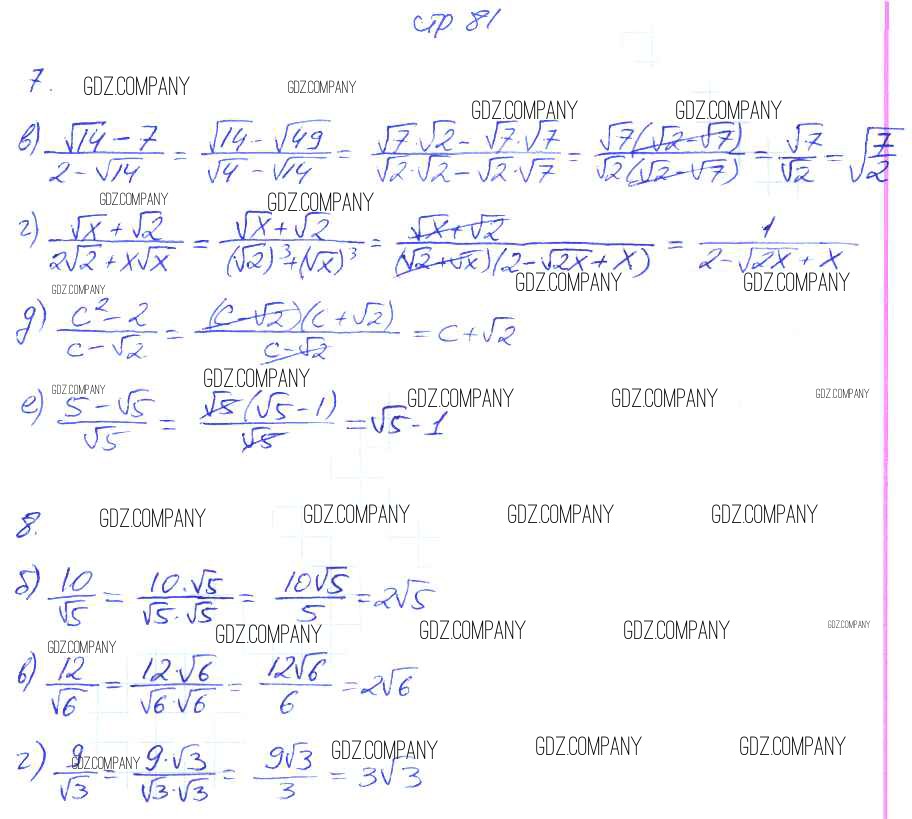 стр 81
7. GDZ.COMPANY GDZ.COMPANY GDZ.COMPANY GDZ.COMPANY
в) (√14 − 7)/(2 − √14) = (√14 − √49)/(√4 − √14) = (√7·√2 − √7·√7)/(√2·√2 − √2·√7) = √7(√2 − √7)/√2(√2 − √7) = √7/√2 = √(7/2)
GDZ.COMPANY GDZ.COMPANY
г) (√x + √2)/(2√2 + x√x) = (√x + √2)/((√2)³ + (√x)³) = (√x + √2)/((√2 + √x)(2 − √2x + x)) = 1/(2 − √2x + x)
GDZ.COMPANY GDZ.COMPANY GDZ.COMPANY
д) (c² − 2)/(c − √2) = (c − √2)(c + √2)/(c − √2) = c + √2
GDZ.COMPANY GDZ.COMPANY GDZ.COMPANY GDZ.COMPANY GDZ.COMPANY
е) (5 − √5)/√5 = √5(√5 − 1)/√5 = √5 − 1
8. GDZ.COMPANY GDZ.COMPANY GDZ.COMPANY GDZ.COMPANY
б) 10/√5 = 10·√5/√5·√5 = 10√5/5 = 2√5
GDZ.COMPANY GDZ.COMPANY GDZ.COMPANY GDZ.COMPANY GDZ.COMPANY
в) 12/√6 = 12·√6/√6·√6 = 12√6/6 = 2√6
GDZ.COMPANY GDZ.COMPANY GDZ.COMPANY GDZ.COMPANY
г) 9/√3 = 9·√3/√3·√3 = 9√3/3 = 3√3